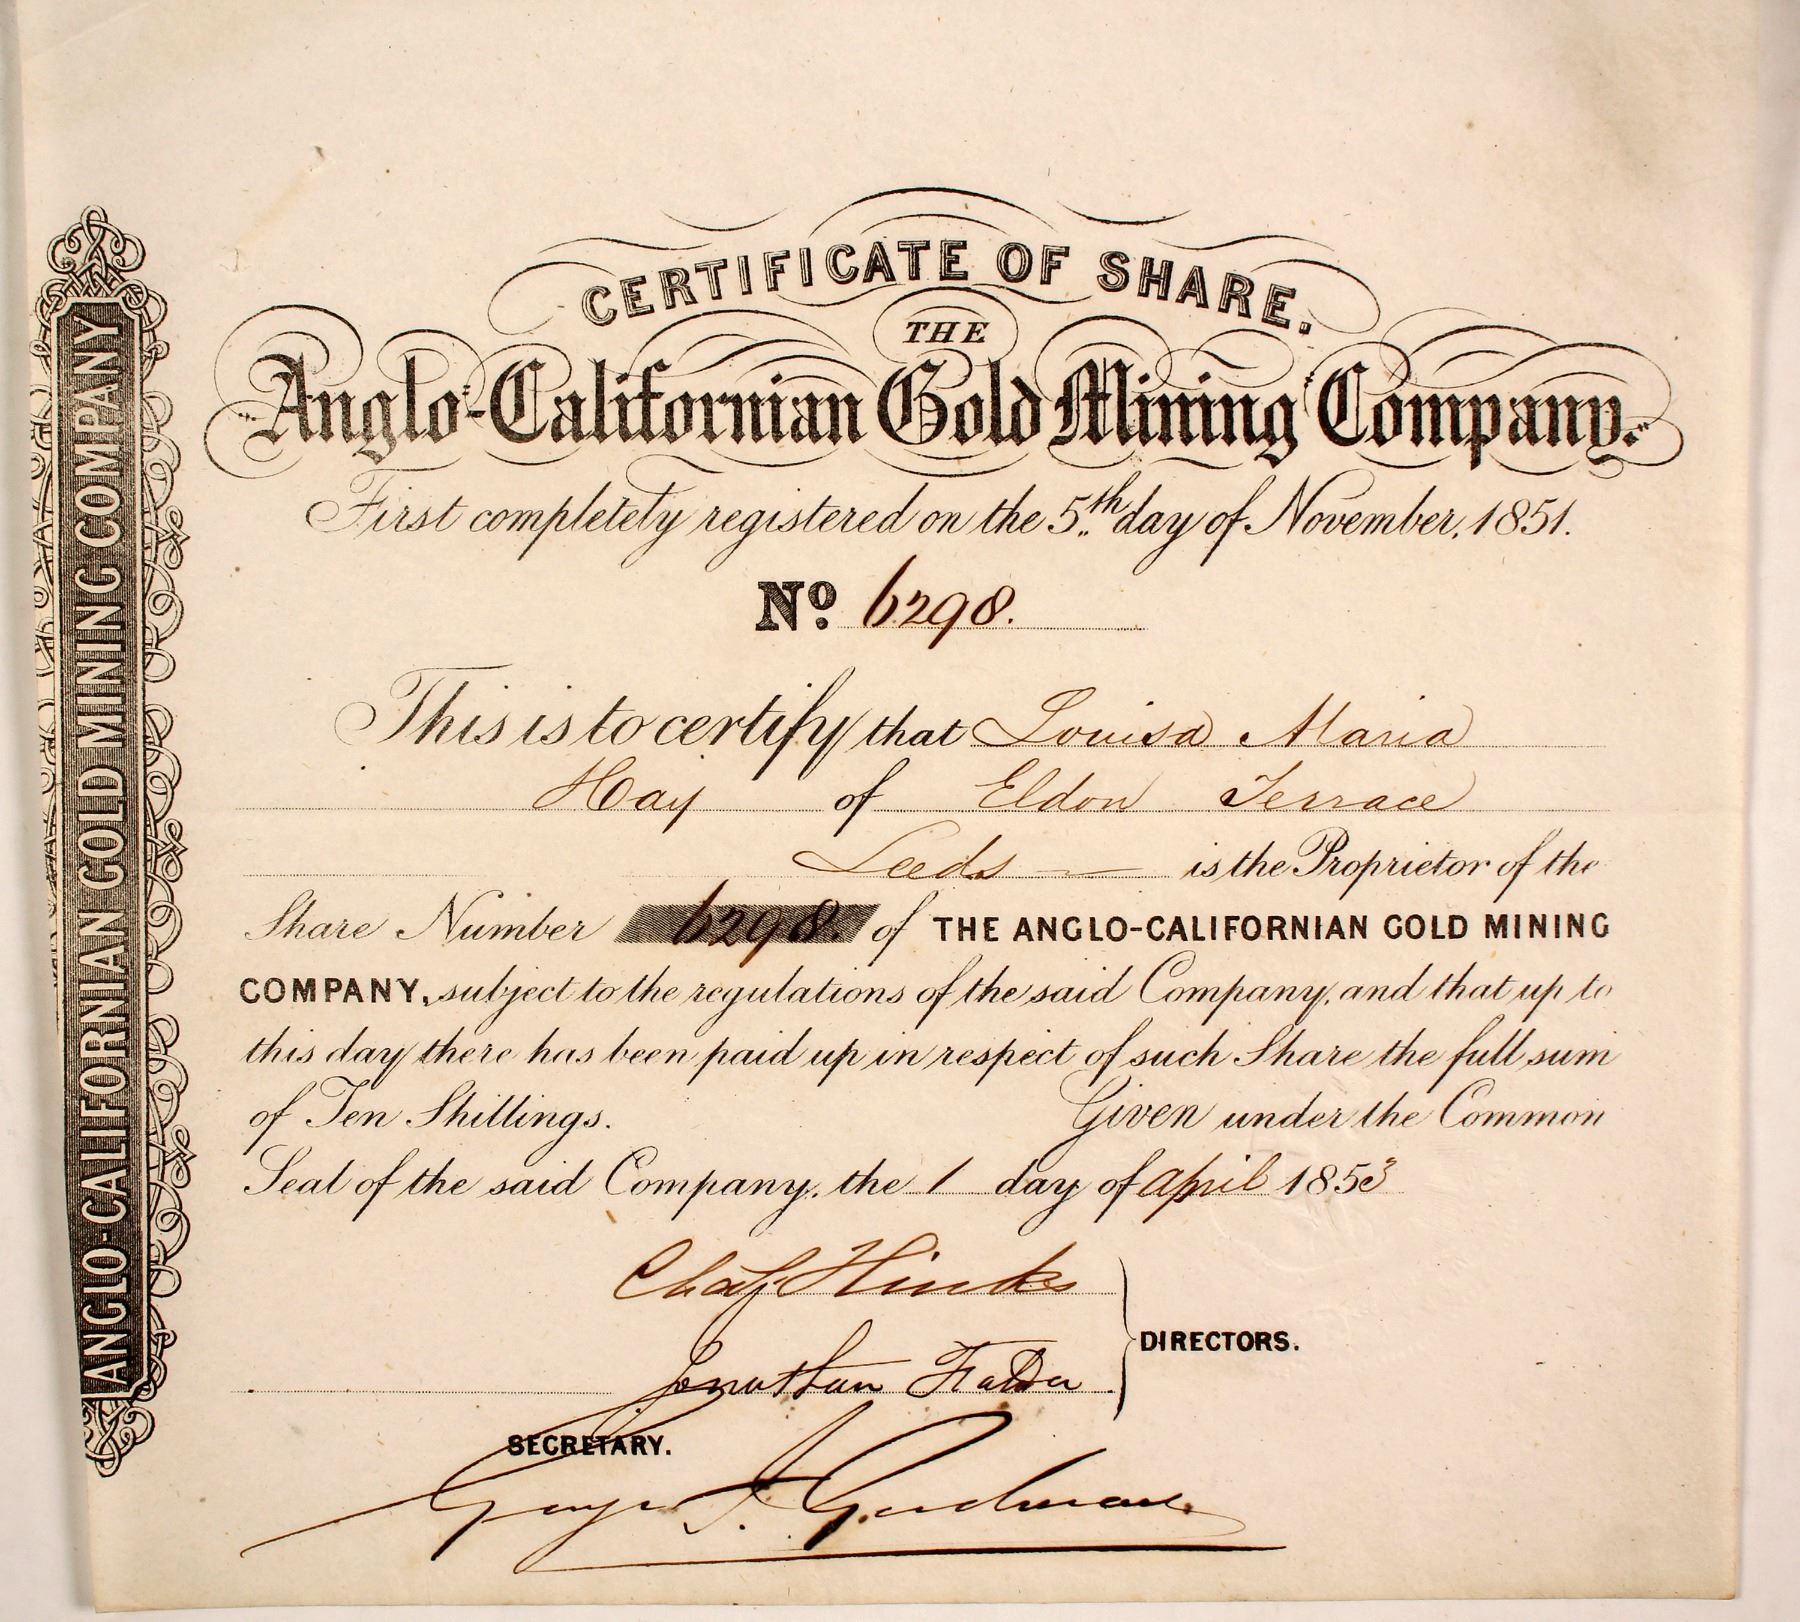 ANGLO-CALIFORNIAN GOLD MINING COMPANY
CERTIFICATE OF SHARE.
THE
Anglo-Californian Gold Mining Company.
First completely registered on the 5th day of November, 1851.
No. 6298.
This is to certify that Louisa Maria
Hay of Eldon Terrace
Leeds — is the Proprietor of the
Share Number 6298. of THE ANGLO-CALIFORNIAN GOLD MINING
COMPANY, subject to the regulations of the said Company, and that up to
this day there has been paid up in respect of such Share the full sum
of Ten Shillings. Given under the Common
Seal of the said Company, the 1 day of april 1853
Chas. Hinks
Jonathan
DIRECTORS.
SECRETARY.
George